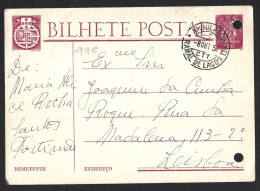 BILHETE POSTAL
De:
Maria Ali
ce Rocha
Santos
Portimão
Exmo Snr
Joaquim da Cunha
Roque Rua da
Madalena 113-2º
Lisboa
RAMAL DE LAGOS
REMETENTE
ENDEREÇO